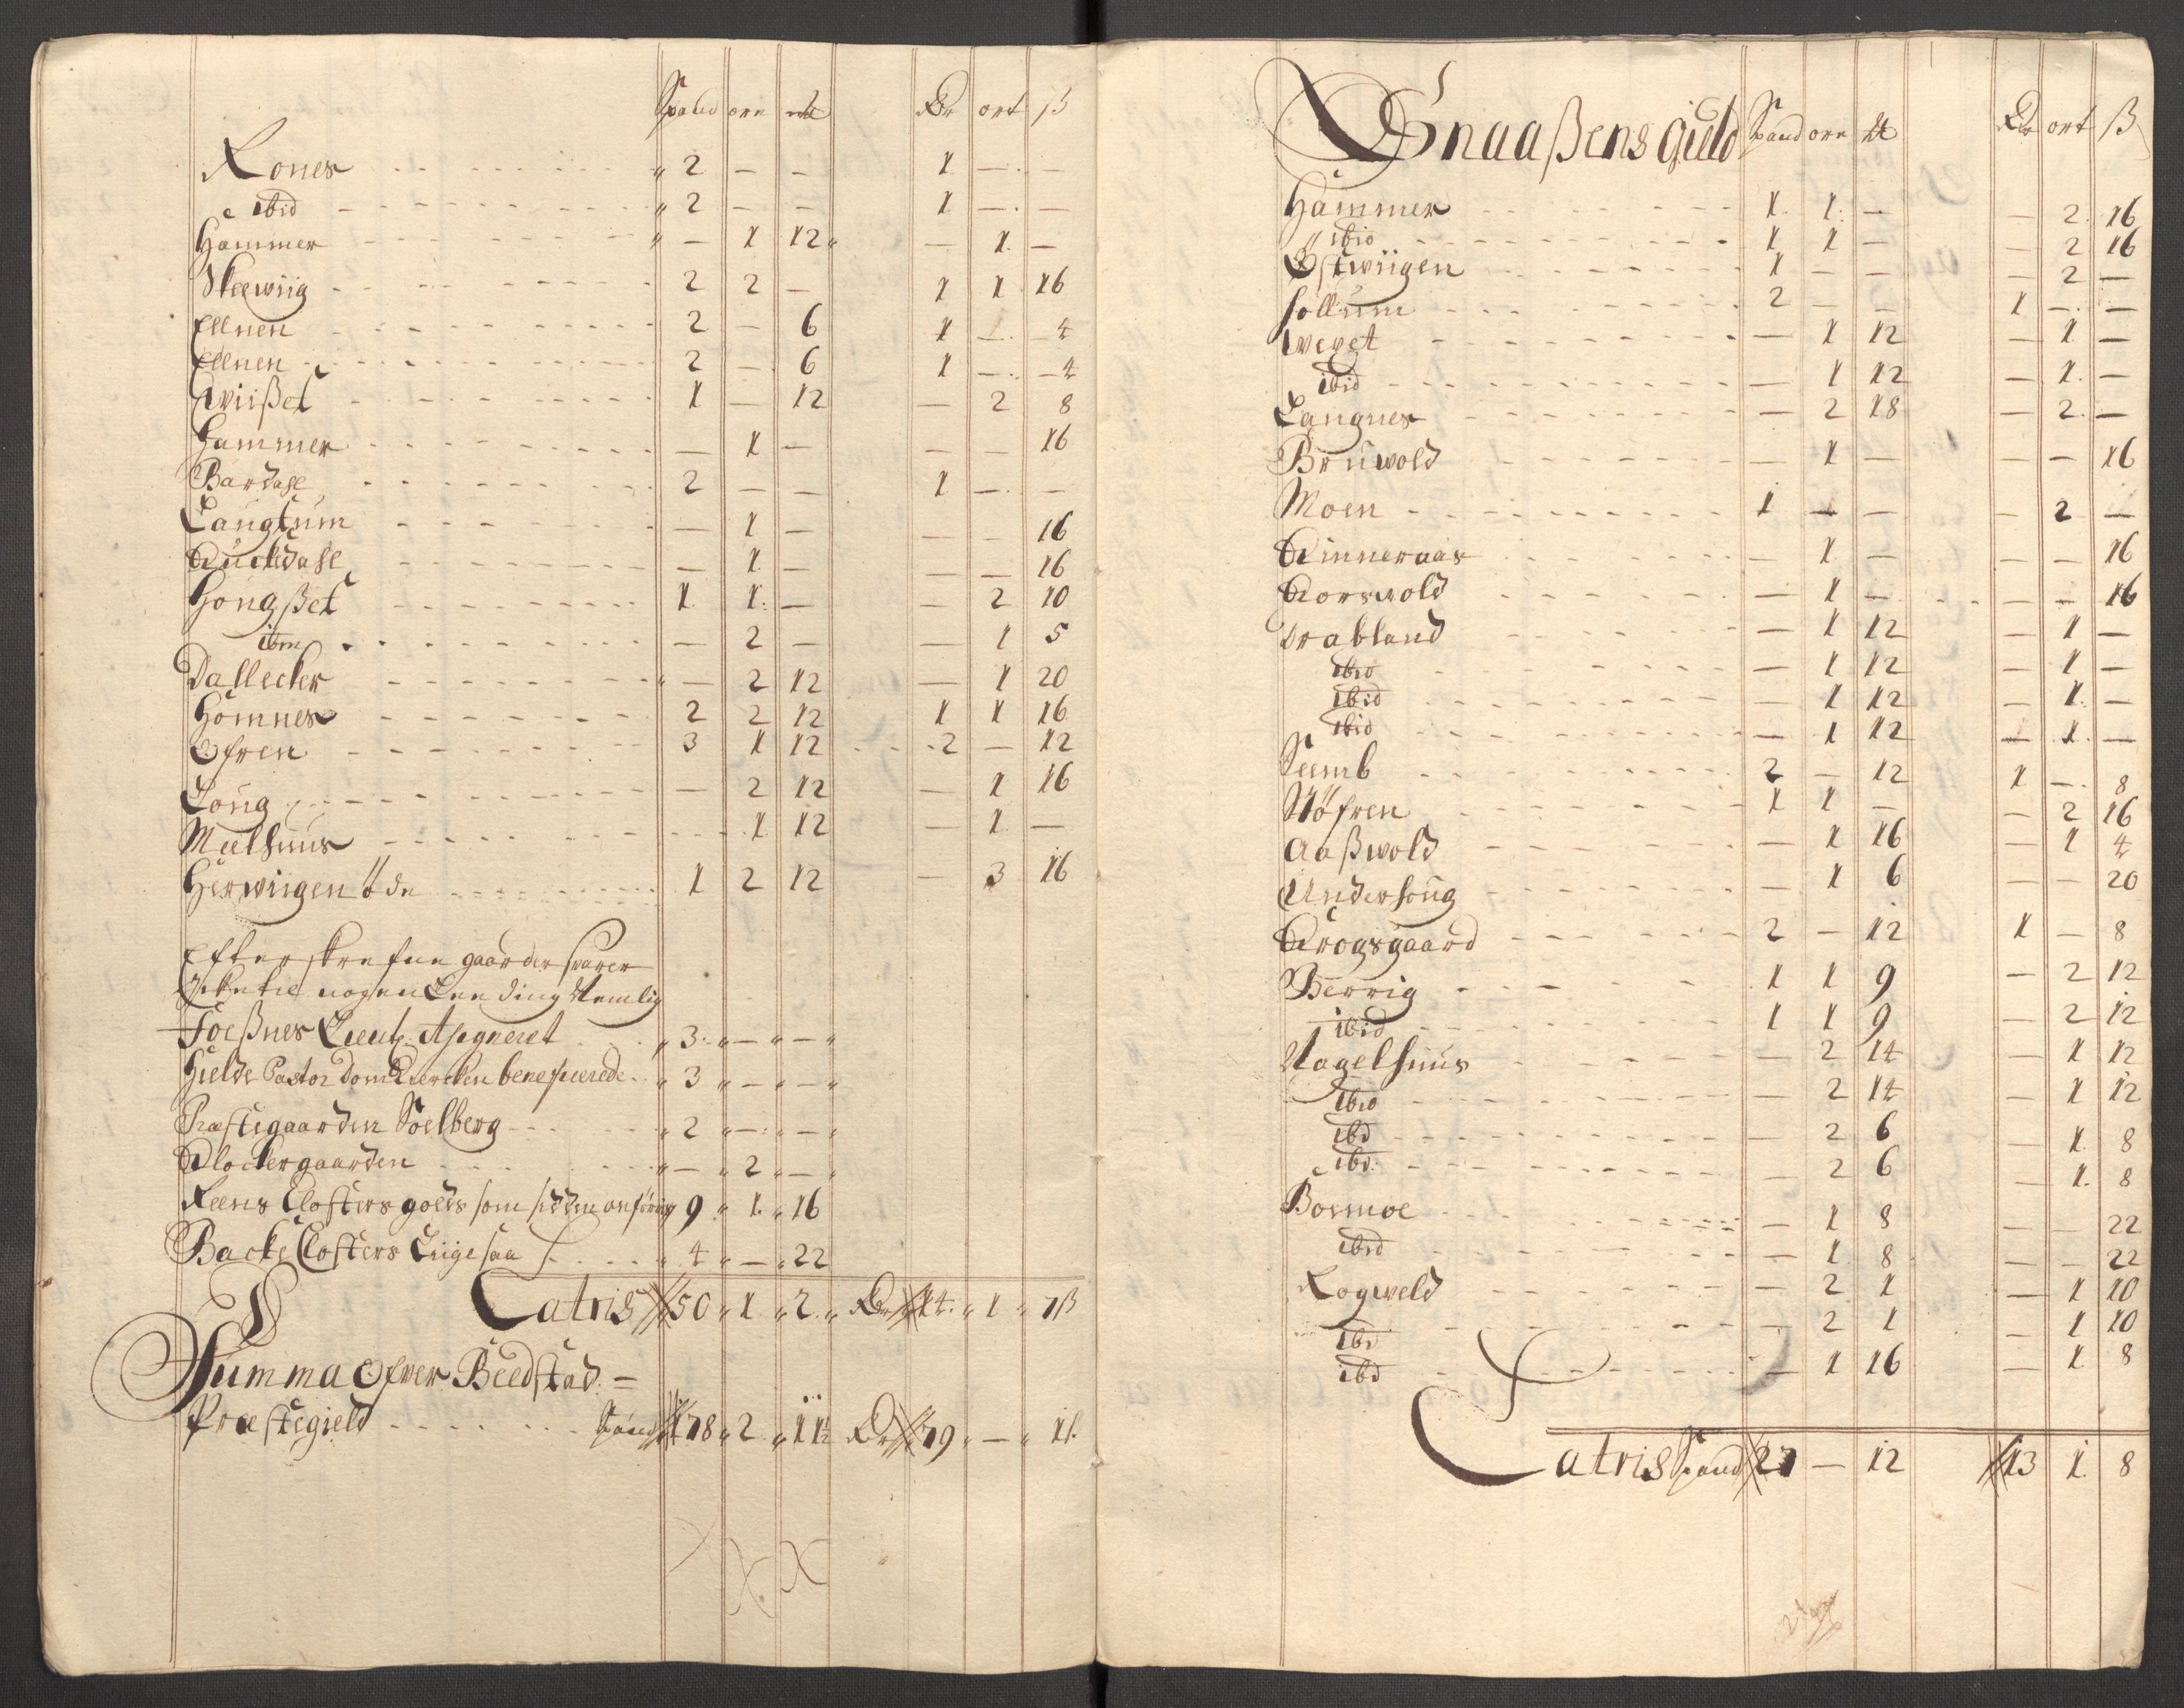 Spand ore Mk Dr ort ß
Rones " 2 — — 1 — —
ibid " 2 — — 1 — —
Hammer " — 1 12 " — 1 —
Skeewiig 2 2 — 1 1 16
Ellnen 2 — 6 1 — 4
Ellnen 2 — 6 1 — 4
Qwißet 1 — 12 — 2 8
Hammer — 1 — — — 16
Bardahl 2 — — 1 — —
Langtum — 1 — — — 16
— 1 — — — 16
Hongßet 1 1 — — 2 10
ibm — 2 — — 1 5
Dallecker " — 2 12 — 1 20
Homnes 2 2 12 1 1 16
Ofren 3 1 12 2 — 12
Long — 2 12 — 1 16
Meelhuus 1 12 — 1 —
Herwiigen öde 1 2 12 — 3 16
Efterskrefne gaarder swarer
nogen Leeding Nemlig
Foeßnes Lieut. Assigneret " 3 " — " — "
Gields Pastor Dom Kiercken beneficerede " 3 " — " — "
Præstegaarden Soelberg " 2 " — " — "
Klockergaarden " — " 2 " — "
Reens Closters goeds som 9 " 1 " 16
Backe Closters Liigesaa " 4 " — " 22
Latris 50 " 1 " 2 " Dr 14 " 1 " 7ß
Summa Ofwer Beedstad =
Præstegield Spand 178 " 2 " 11½ Dr 79 " — " 11
Snaaßens Gield Spand ore Mk Dr ort ß
Hammer 1 1 — — 2 16
ibid 1 1 — — 2 16
Östwiigen 1 — — — 2 —
Sollum 2 — — 1 — —
Wevet — 1 12 — 1 —
ibid — 1 12 — 1 —
Langnes — 2 18 — 2 —
Bruwold — 1 — — — 16
Moen 1 — — — 2 —
Kinneraas — 1 — — — 16
Korswold — 1 — — — 16
Drabland — 1 12 — 1 —
ibid — 1 12 — 1 —
ibid — 1 12 — 1 —
ibid — 1 12 — 1 —
Seemb 2 — 12 1 — 8
Stöfren 1 1 — — 2 16
Aaßwold — 1 16 — 1 4
Underhoug — 1 6 — — 20
Krogsgaard 2 — 12 1 — 8
Berrig 1 1 9 — 2 12
ibid 1 1 9 — 2 12
Nagelhuus — 2 14 — 1 12
ibid — 2 14 — 1 12
ibd — 2 6 — 1 8
ibd — 2 6 — 1 8
Bosmoe — 1 8 — — 22
ibid — 1 8 — — 22
Rogweld — 2 1 — 1 10
ibd — 2 1 — 1 10
ibd — 1 16 — 1 8
Latris Spand 27 — 12 13 1 8